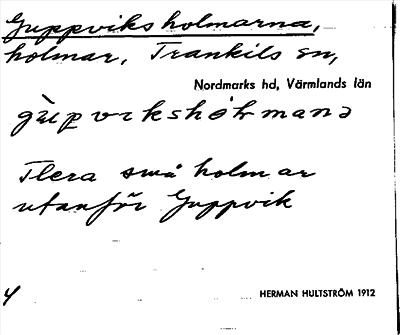 Guppviksholmarna,
holmar, Trankils sn,
Nordmarks hd, Värmlands län
Flera små holmar
utanför Guppvik
HERMAN HULTSTRÖM 1912